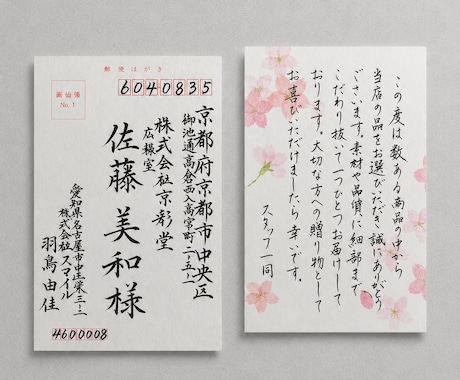 郵便はがき
6040835
画仙紙
No.1
京都府京都市中央区
御池通高倉西入高宮町二-五-一
株式会社京彰堂
広報室
佐藤美和様
愛知県名古屋市中区栄三-二
株式会社スマイル
羽鳥由佳
4600008
この度は数ある商品の中から
当店の品をお選びいただき誠にありがとう
ございます。素材や品質に細部まで
こだわり抜いて一つひとつお届けして
おります。大切な方への贈り物として
お喜びいただけましたら幸いです。
スタッフ一同